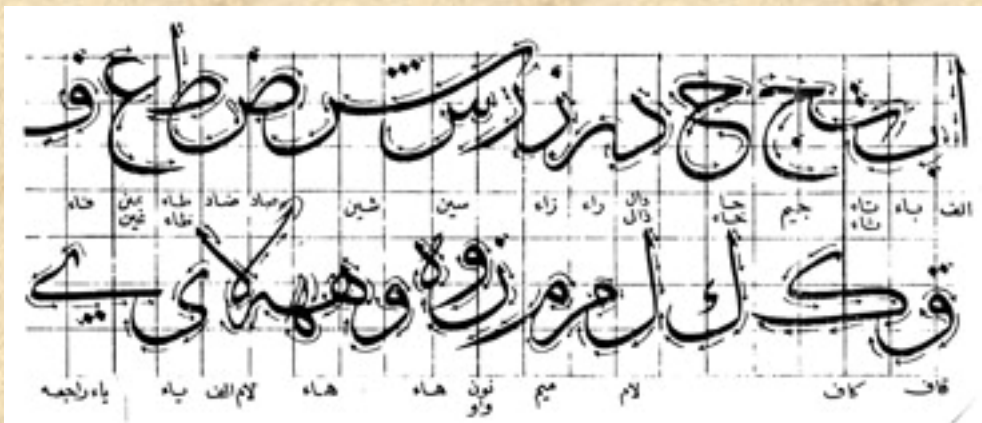 ا ب ت ج ح د ر ز س ش ض ط ع ف
الف باء تاء ثاء جيم حا خاء دال ذال راء زاء سين شين صاد ضاد طاء ظاء عين غين فاء
ق ك ك ل م م ن و ه و ه ه لا ى ي
قاف كاف لام ميم نون واو هاء هاء لام الف ياء ياء راجعه